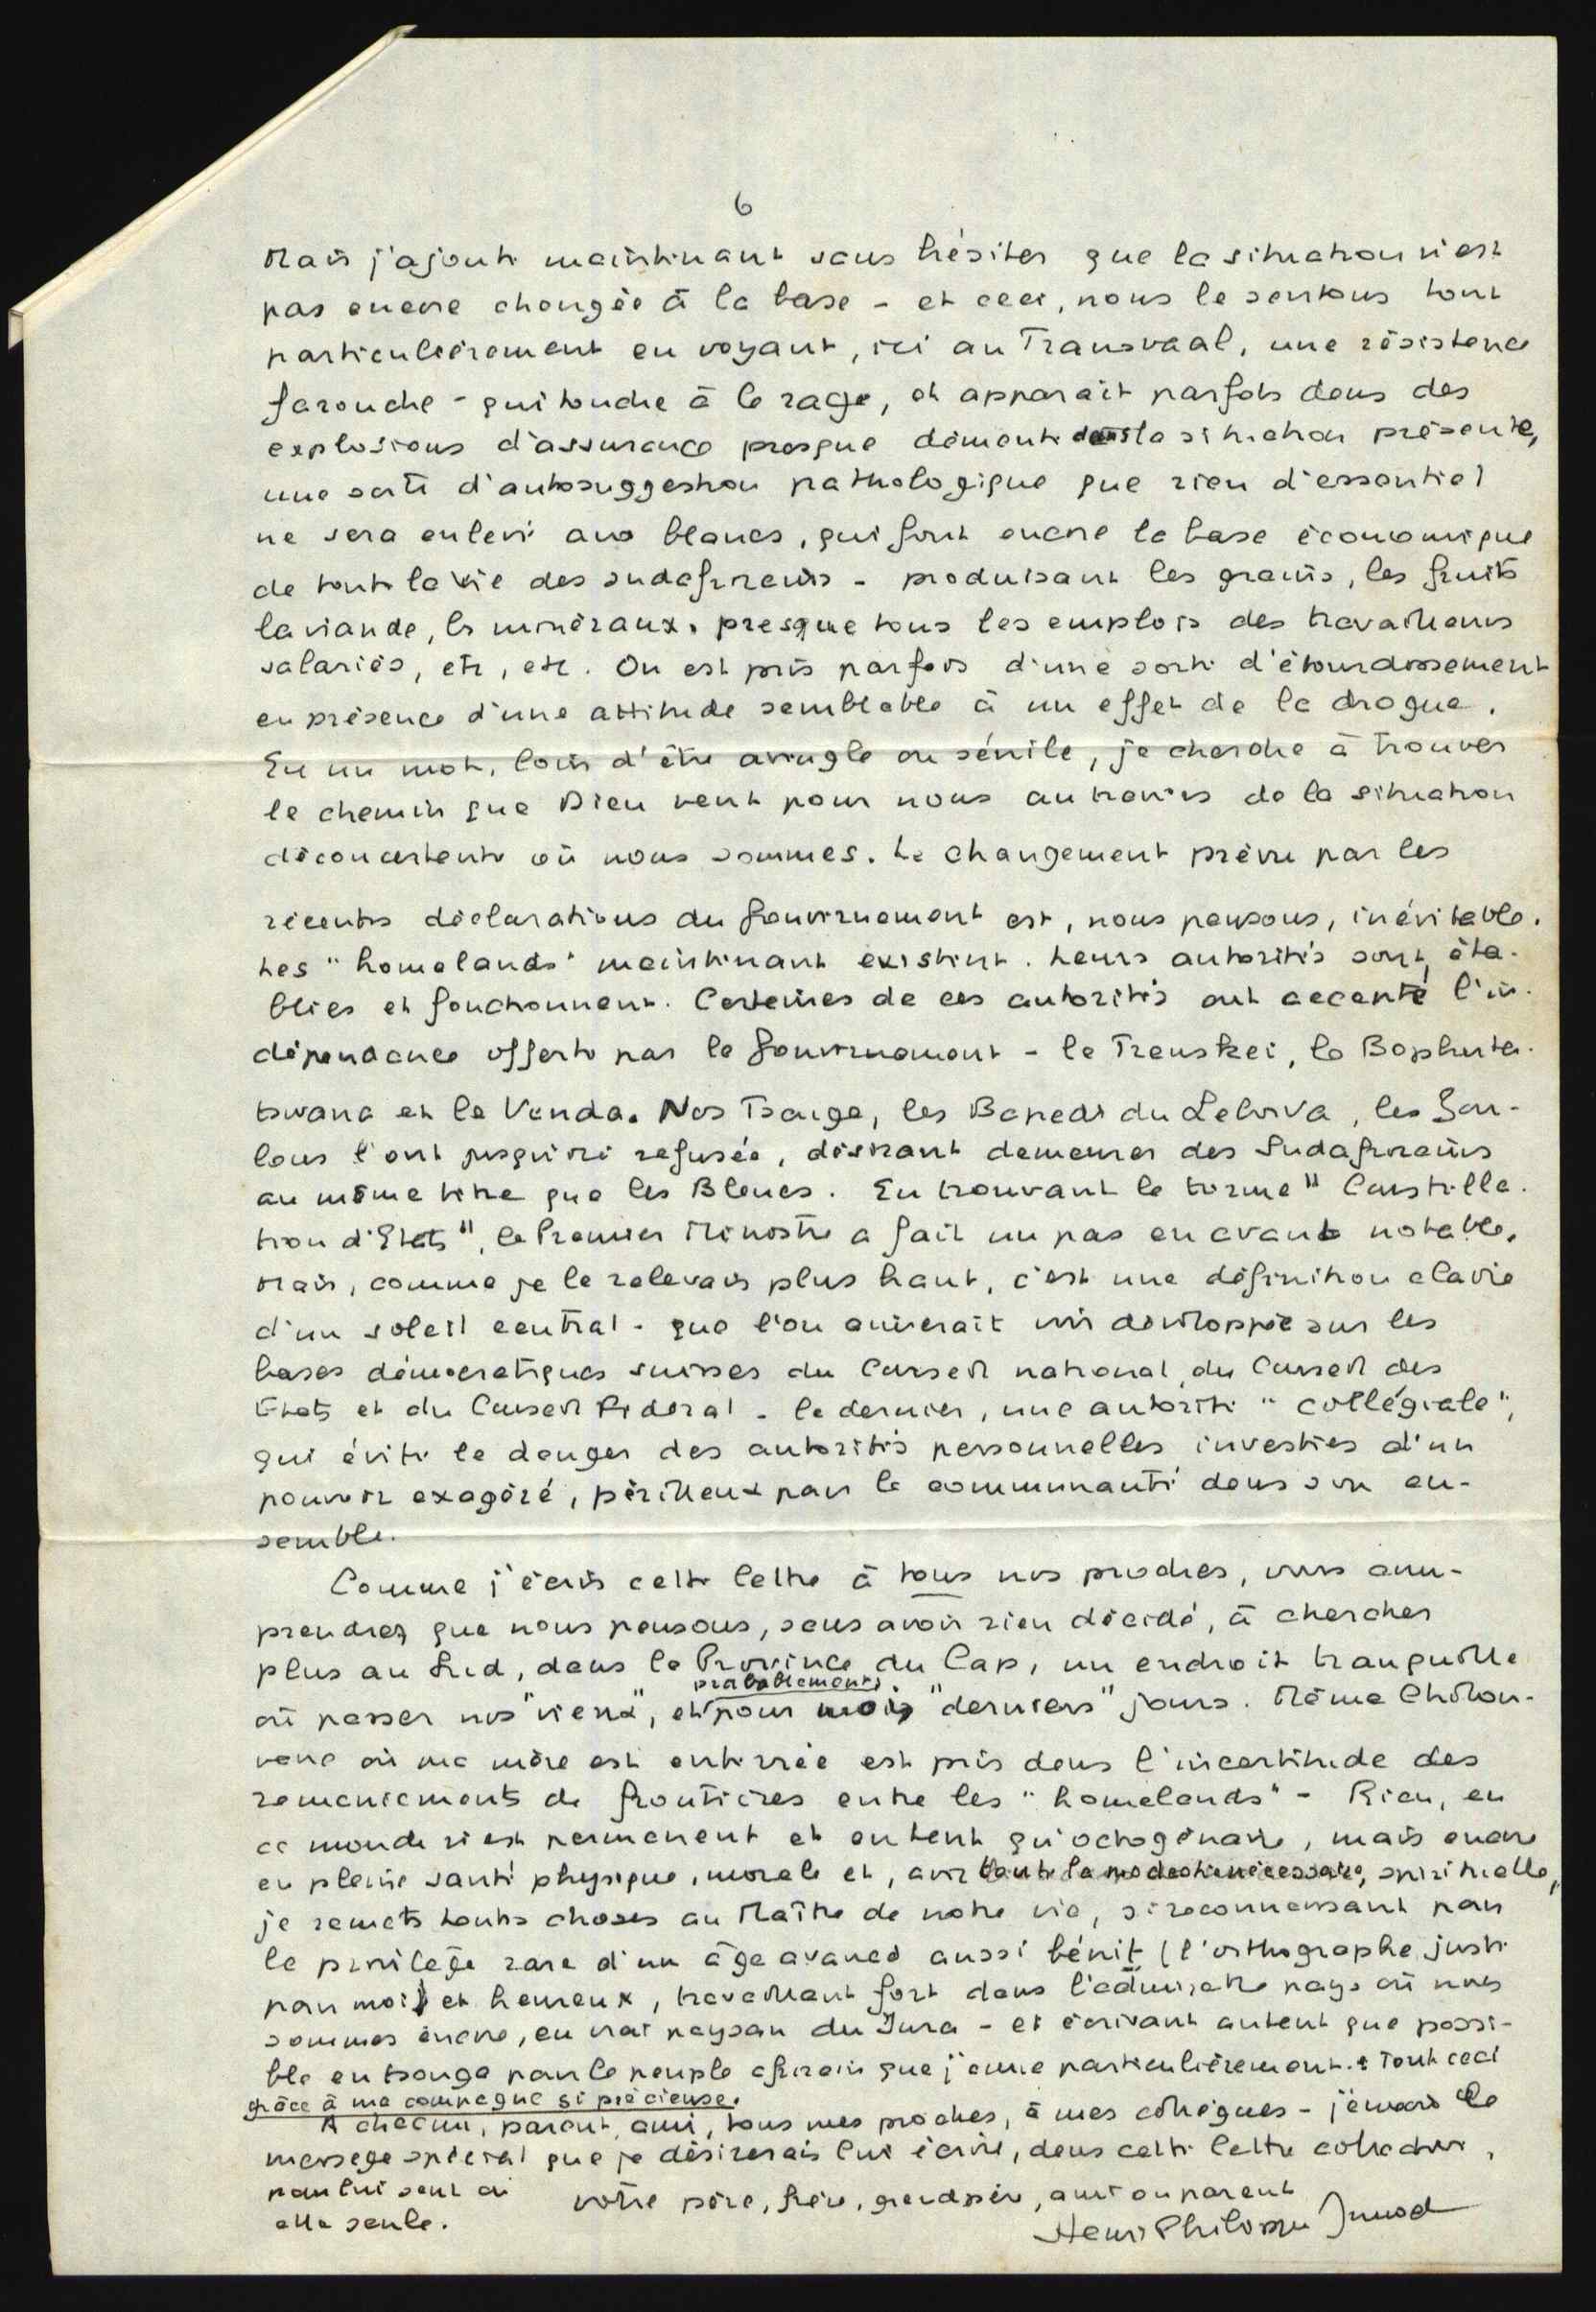 6
Mais j'ajoute maintenant sans hésiter que la situation n'est
pas encore changée à la base - et ceci, nous le sentons tout
particulièrement en voyant, ici au Transvaal, une résistance
farouche - qui touche à la rage, et apparaît parfois dans des
explosions d'assurance presque démente dans la situation présente,
une sorte d'autosuggestion pathologique que rien d'essentiel
ne sera enlevé aux blancs, qui font encore la base économique
de toute la vie des sudafricains - produisant les grains, les fruits
la viande, les minéraux, presque tous les emplois des travailleurs
salariés, etc, etc. On est pris parfois d'une sorte d'étourdissement
en présence d'une attitude semblable à un effet de la drogue.
En un mot, loin d'être aveugle ou sénile, je cherche à trouver
le chemin que Dieu veut pour nous au travers de la situation
déconcertante où nous sommes. Le changement prévu par les
récentes déclarations du Gouvernement est, nous pensons, inévitable.
Les "homelands" maintenant existent. Leurs autorités sont éta-
blies et fonctionnent. Certaines de ces autorités ont accepté l'in-
dépendance offerte par le Gouvernement - le Transkei, le Bophuta-
tswana et le Venda. Nos Tsonga, les Bapedi du Lebowa, les Zou-
lous l'ont jusqu'ici refusée, désirant demeurer des Sudafricains
au même titre que les Blancs. En trouvant le terme "Constella-
tion d'Etats", le Premier Ministre a fait un pas en avant notable.
Mais, comme je le relevais plus haut, c'est une définition
d'un soleil central - que l'on aimerait voir développée sur les
bases démocratiques suisses du Conseil national, du Conseil des
Etats et du Conseil Fédéral - le dernier, une autorité "collégiale",
qui évite le danger des autorités personnelles investies d'un
pouvoir exagéré, périlleux pour la communauté dans son en-
semble.
Comme j'écris cette lettre à tous nos proches, vous com-
prendrez que nous pensons, sans avoir rien décidé, à chercher
plus au Sud, dans la Province du Cap, un endroit tranquille
probablement
où passer nos "vieux", et pour moi, "derniers" jours. Même
où ma mère est enterrée est pris dans l'incertitude des
remaniements de frontières entre les "homelands" - Rien, en
ce monde n'est permanent et en tant qu'octogénaire, mais encore
en pleine santé physique, morale et, avec toute la modestie nécessaire, spirituelle,
je remets toutes choses au Maître de notre vie, si reconnaissant pour
le privilège rare d'un âge avancé aussi bénit (l'orthographe juste
pour moi) et heureux, travaillant fort dans l'admirable pays où nous
sommes encore, en vrai paysan du Jura - et écrivant autant que possi-
ble en tsonga pour le peuple africain que j'aime particulièrement. Tout ceci
grâce à ma compagne si précieuse.
A chacun, parent, ami, tous mes proches, à mes collègues - j'envoie le
message spécial que je désirerais lui écrire, dans cette lettre collective,
pour lui seul ou
elle seule.
votre père, frère, grandpère, ami ou parent
Henri Philippe Junod